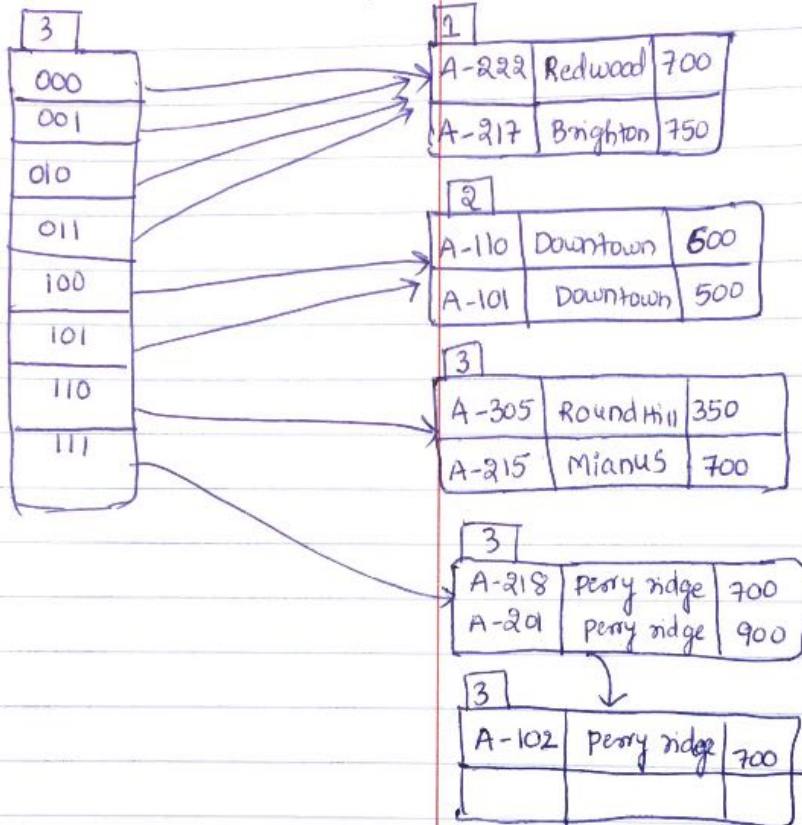 3
000
001
010
011
100
101
110
111
1
A-222 Redwood 700
A-217 Brighton 750
2
A-110 Downtown 600
A-101 Downtown 500
3
A-305 Round Hill 350
A-215 Mianus 700
3
A-218 perry ridge 700
A-201 perry ridge 900
3
A-102 perry ridge 700